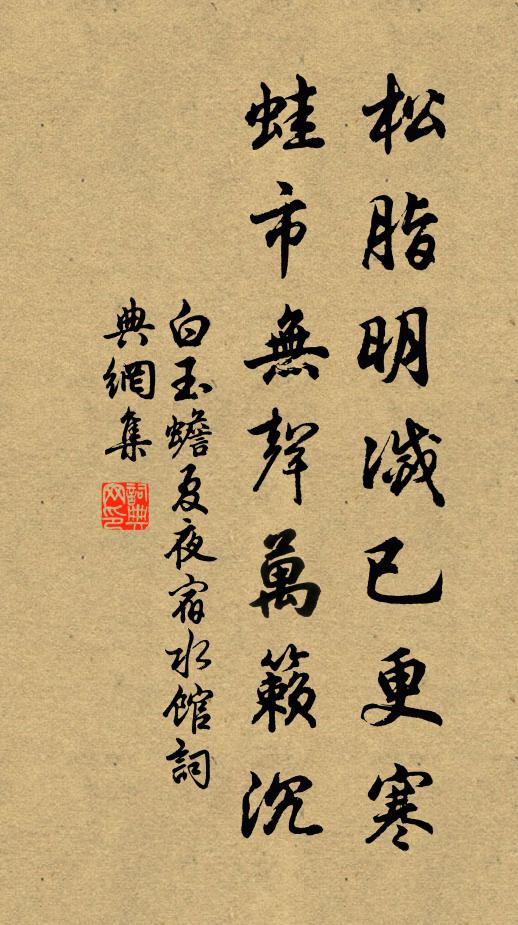 松脂明滅已更寒
蛙市無聲萬籟沉
白玉蟾夏夜宿水館詞
典網集
詞典網印